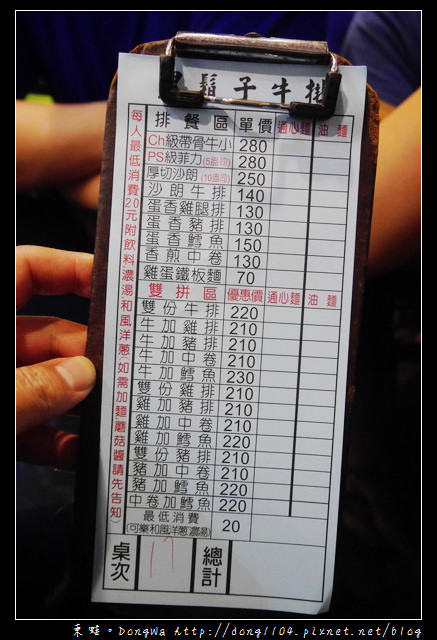 鬍子牛排
排餐區 單價 通心麵 油麵
Ch級帶骨牛小 280
PS級菲力(5盎司) 280
厚切沙朗(10盎司) 250
沙朗牛排 140
蛋香雞腿排 130
蛋香豬排 130
蛋香鱈魚 150
香煎中卷 130
雞蛋鐵板麵 70
雙拼區 優惠價 通心麵 油麵
雙份牛排 220
牛加雞排 210
牛加豬排 210
牛加中卷 210
牛加鱈魚 230
雙份雞排 210
雞加豬排 210
雞加中卷 210
雞加鱈魚 220
雙份豬排 210
豬加中卷 210
豬加鱈魚 220
中卷加鱈魚 220
最低消費 20
(可樂和風洋蔥濃湯)
桌次 17 總計
每人最低消費20元附飲料濃湯和風洋蔥(如需加麵蘑菇醬請先告知)
東蛙。DongWa http://dong1104.pixnet.net/blog